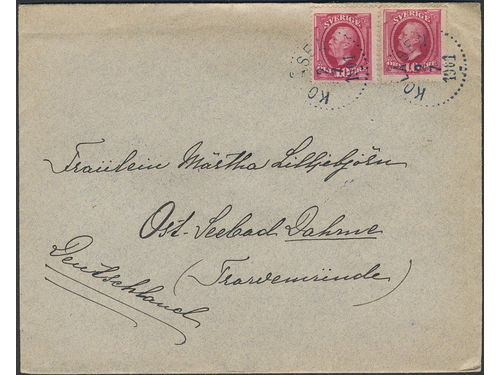 SVERIGE SVERIGE
10 10
1901
Fräulein Märtha Lilljebjörn
Ost-Seebad Dahme
(Travemünde)
Deutschland